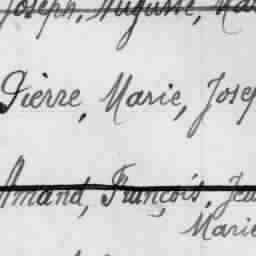 Joseph, Auguste, Ma
Pierre, Marie, Josep
Amand, François, Jea
Marie